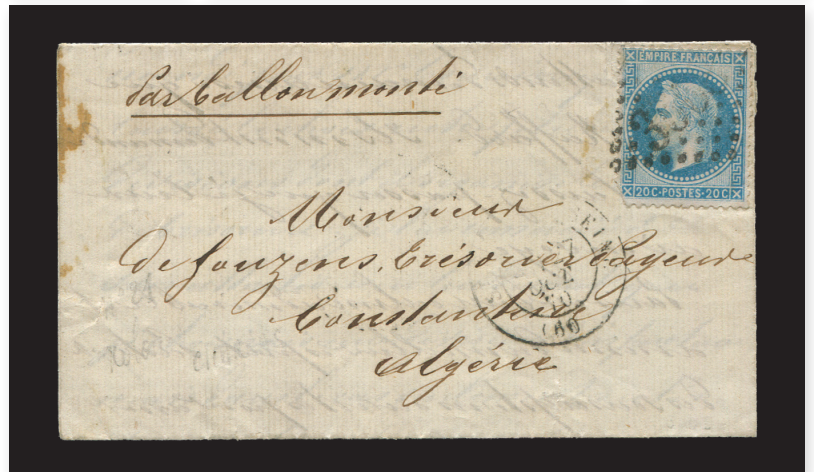 Par ballon monté
EMPIRE FRANÇAIS
20 C · POSTES · 20 C
Monsieur
de Souzens, Trésorier Payeur
Constantine
Algérie
(60)